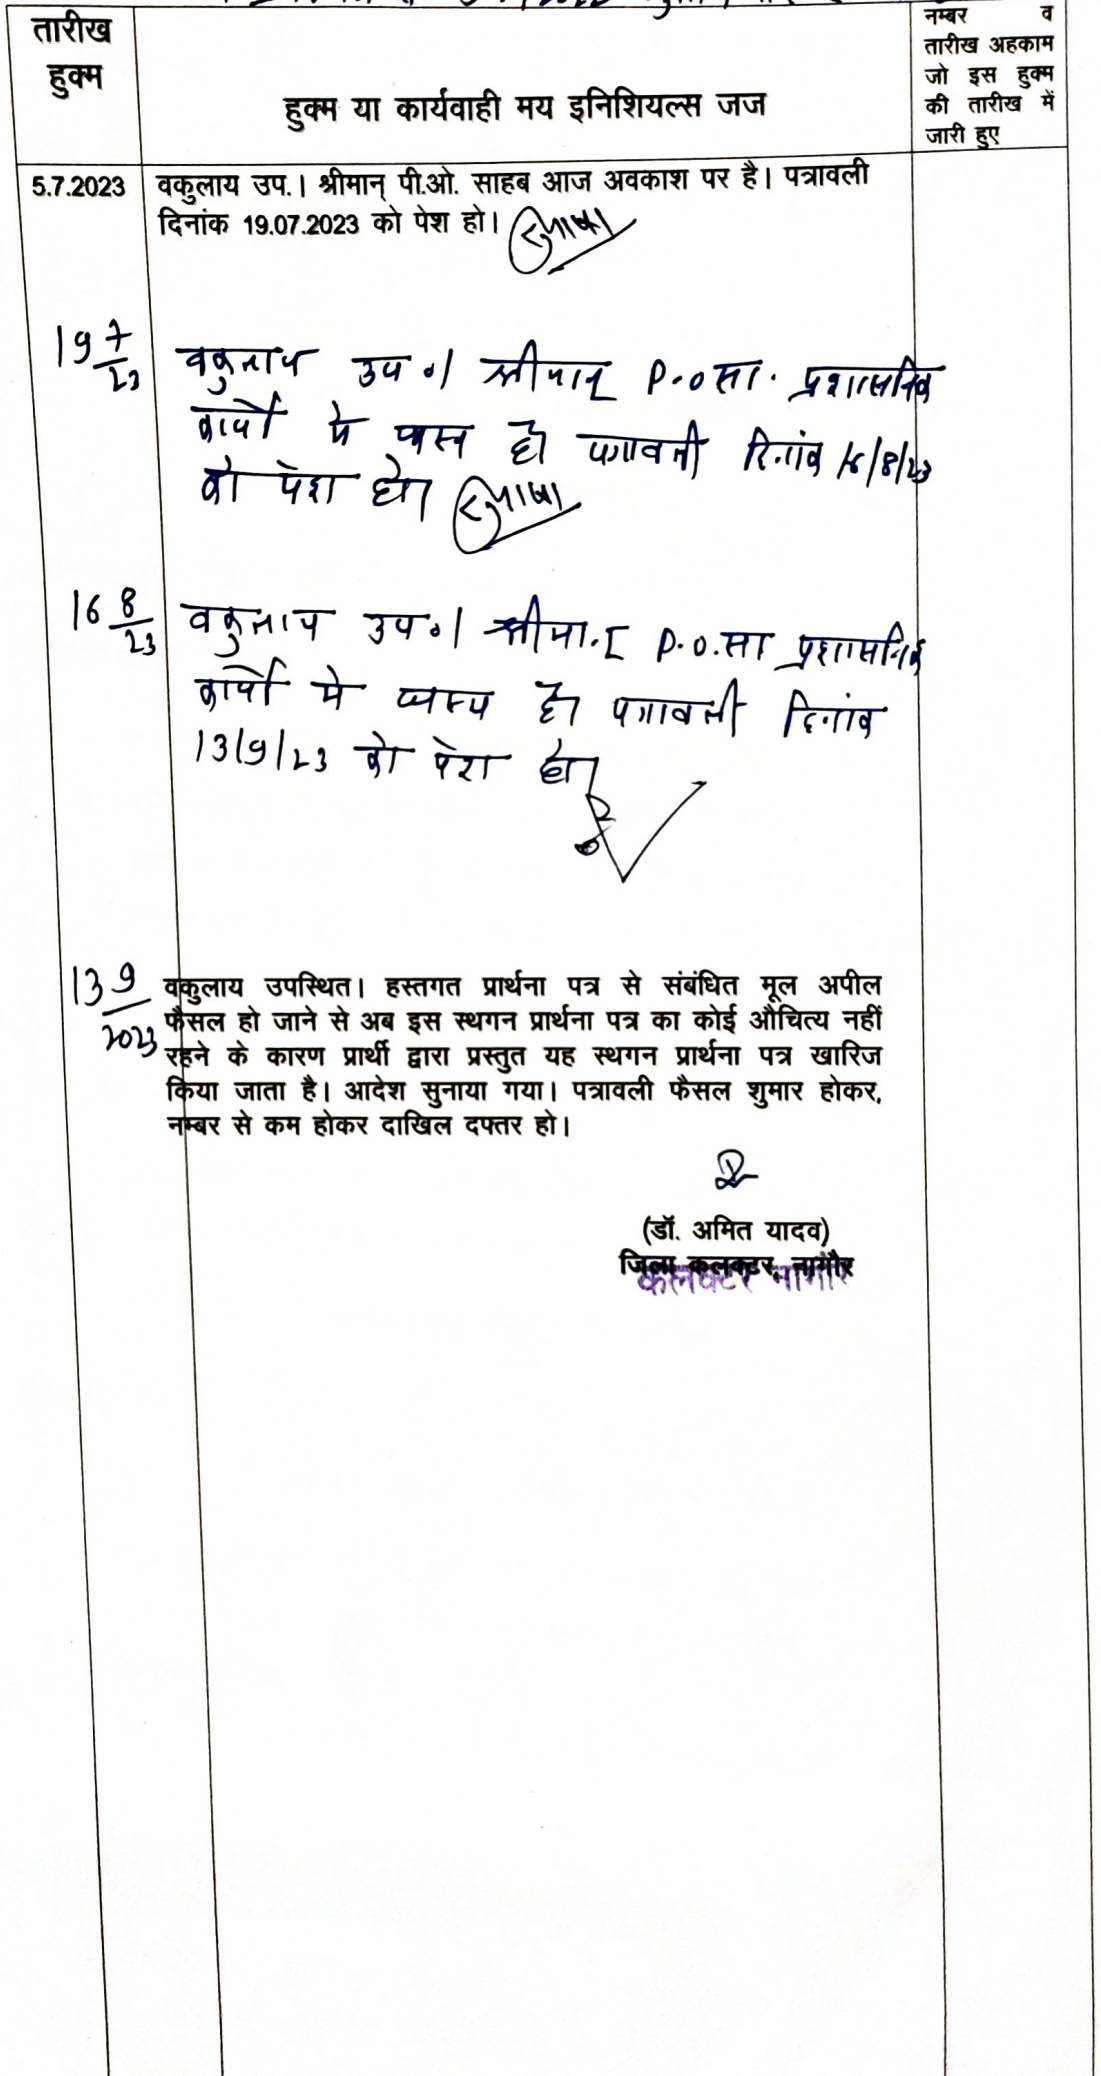 तारीख
हुक्म
हुक्म या कार्यवाही मय इनिशियल्स जज
नम्बर व
तारीख अहकाम
जो इस हुक्म
की तारीख में
जारी हुए
5.7.2023 वकुलाय उप.। श्रीमान् पी.ओ. साहब आज अवकाश पर है। पत्रावली
दिनांक 19.07.2023 को पेश हो।
19 7/23 वकुलाय उप०। श्रीमान् P.O सा. प्रशासनिक
कार्यो मे व्यस्त है। पत्रावली दिनांक 16/8/23
को पेश हो।
16 8/23 वकुलाय उप०। श्रीमान् P.O. सा प्रशासनिक
कार्यो मे व्यस्त है। पत्रावली दिनांक
13/9/23 को पेश हो।
13 9/2023 वकुलाय उपस्थित। हस्तगत प्रार्थना पत्र से संबंधित मूल अपील
फैसल हो जाने से अब इस स्थगन प्रार्थना पत्र का कोई औचित्य नहीं
रहने के कारण प्रार्थी द्वारा प्रस्तुत यह स्थगन प्रार्थना पत्र खारिज
किया जाता है। आदेश सुनाया गया। पत्रावली फैसल शुमार होकर,
नम्बर से कम होकर दाखिल दफ्तर हो।
(डॉ. अमित यादव)
जिला कलक्टर, नागौर
कलक्टर नागौर